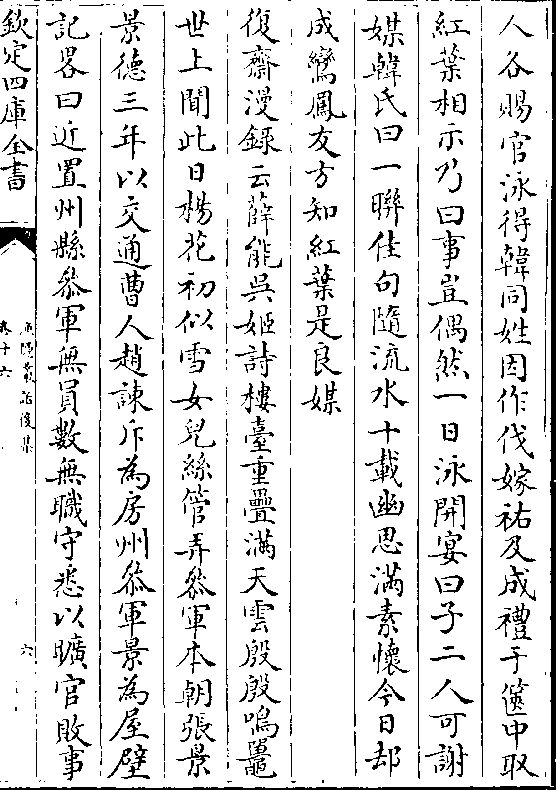 人各賜官泳得韓同姓因作伐嫁祐及成禮于篋中取
紅葉相示乃曰事豈偶然一日泳開宴曰子二人可謝
媒韓氏曰一聯佳句隨流水十載幽思滿素懷今日却
成鸞鳳友方知紅葉是良媒
復齋漫錄云薛能吳姬詩樓臺重疊滿天雲殷殷鳴鼉
世上聞此日楊花初似雪女兒絲管弄叅軍本朝張景
景德三年以交通曹人趙諫斥為房州叅軍景為屋壁
記畧曰近置州縣叅軍無員數無職守悉以曠官敗事
欽定四庫全書
漁隱叢話後集
卷十六
六